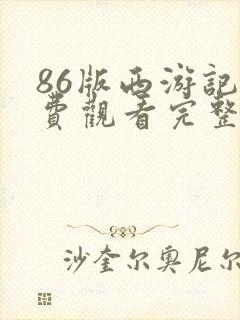 86版西游記
費觀看完整
沙奎尔奥尼尔